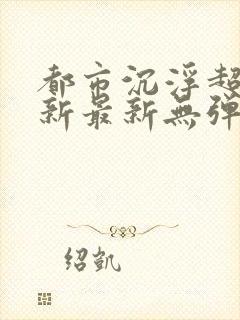 都市沉浮超
新最新無弹
绍凯